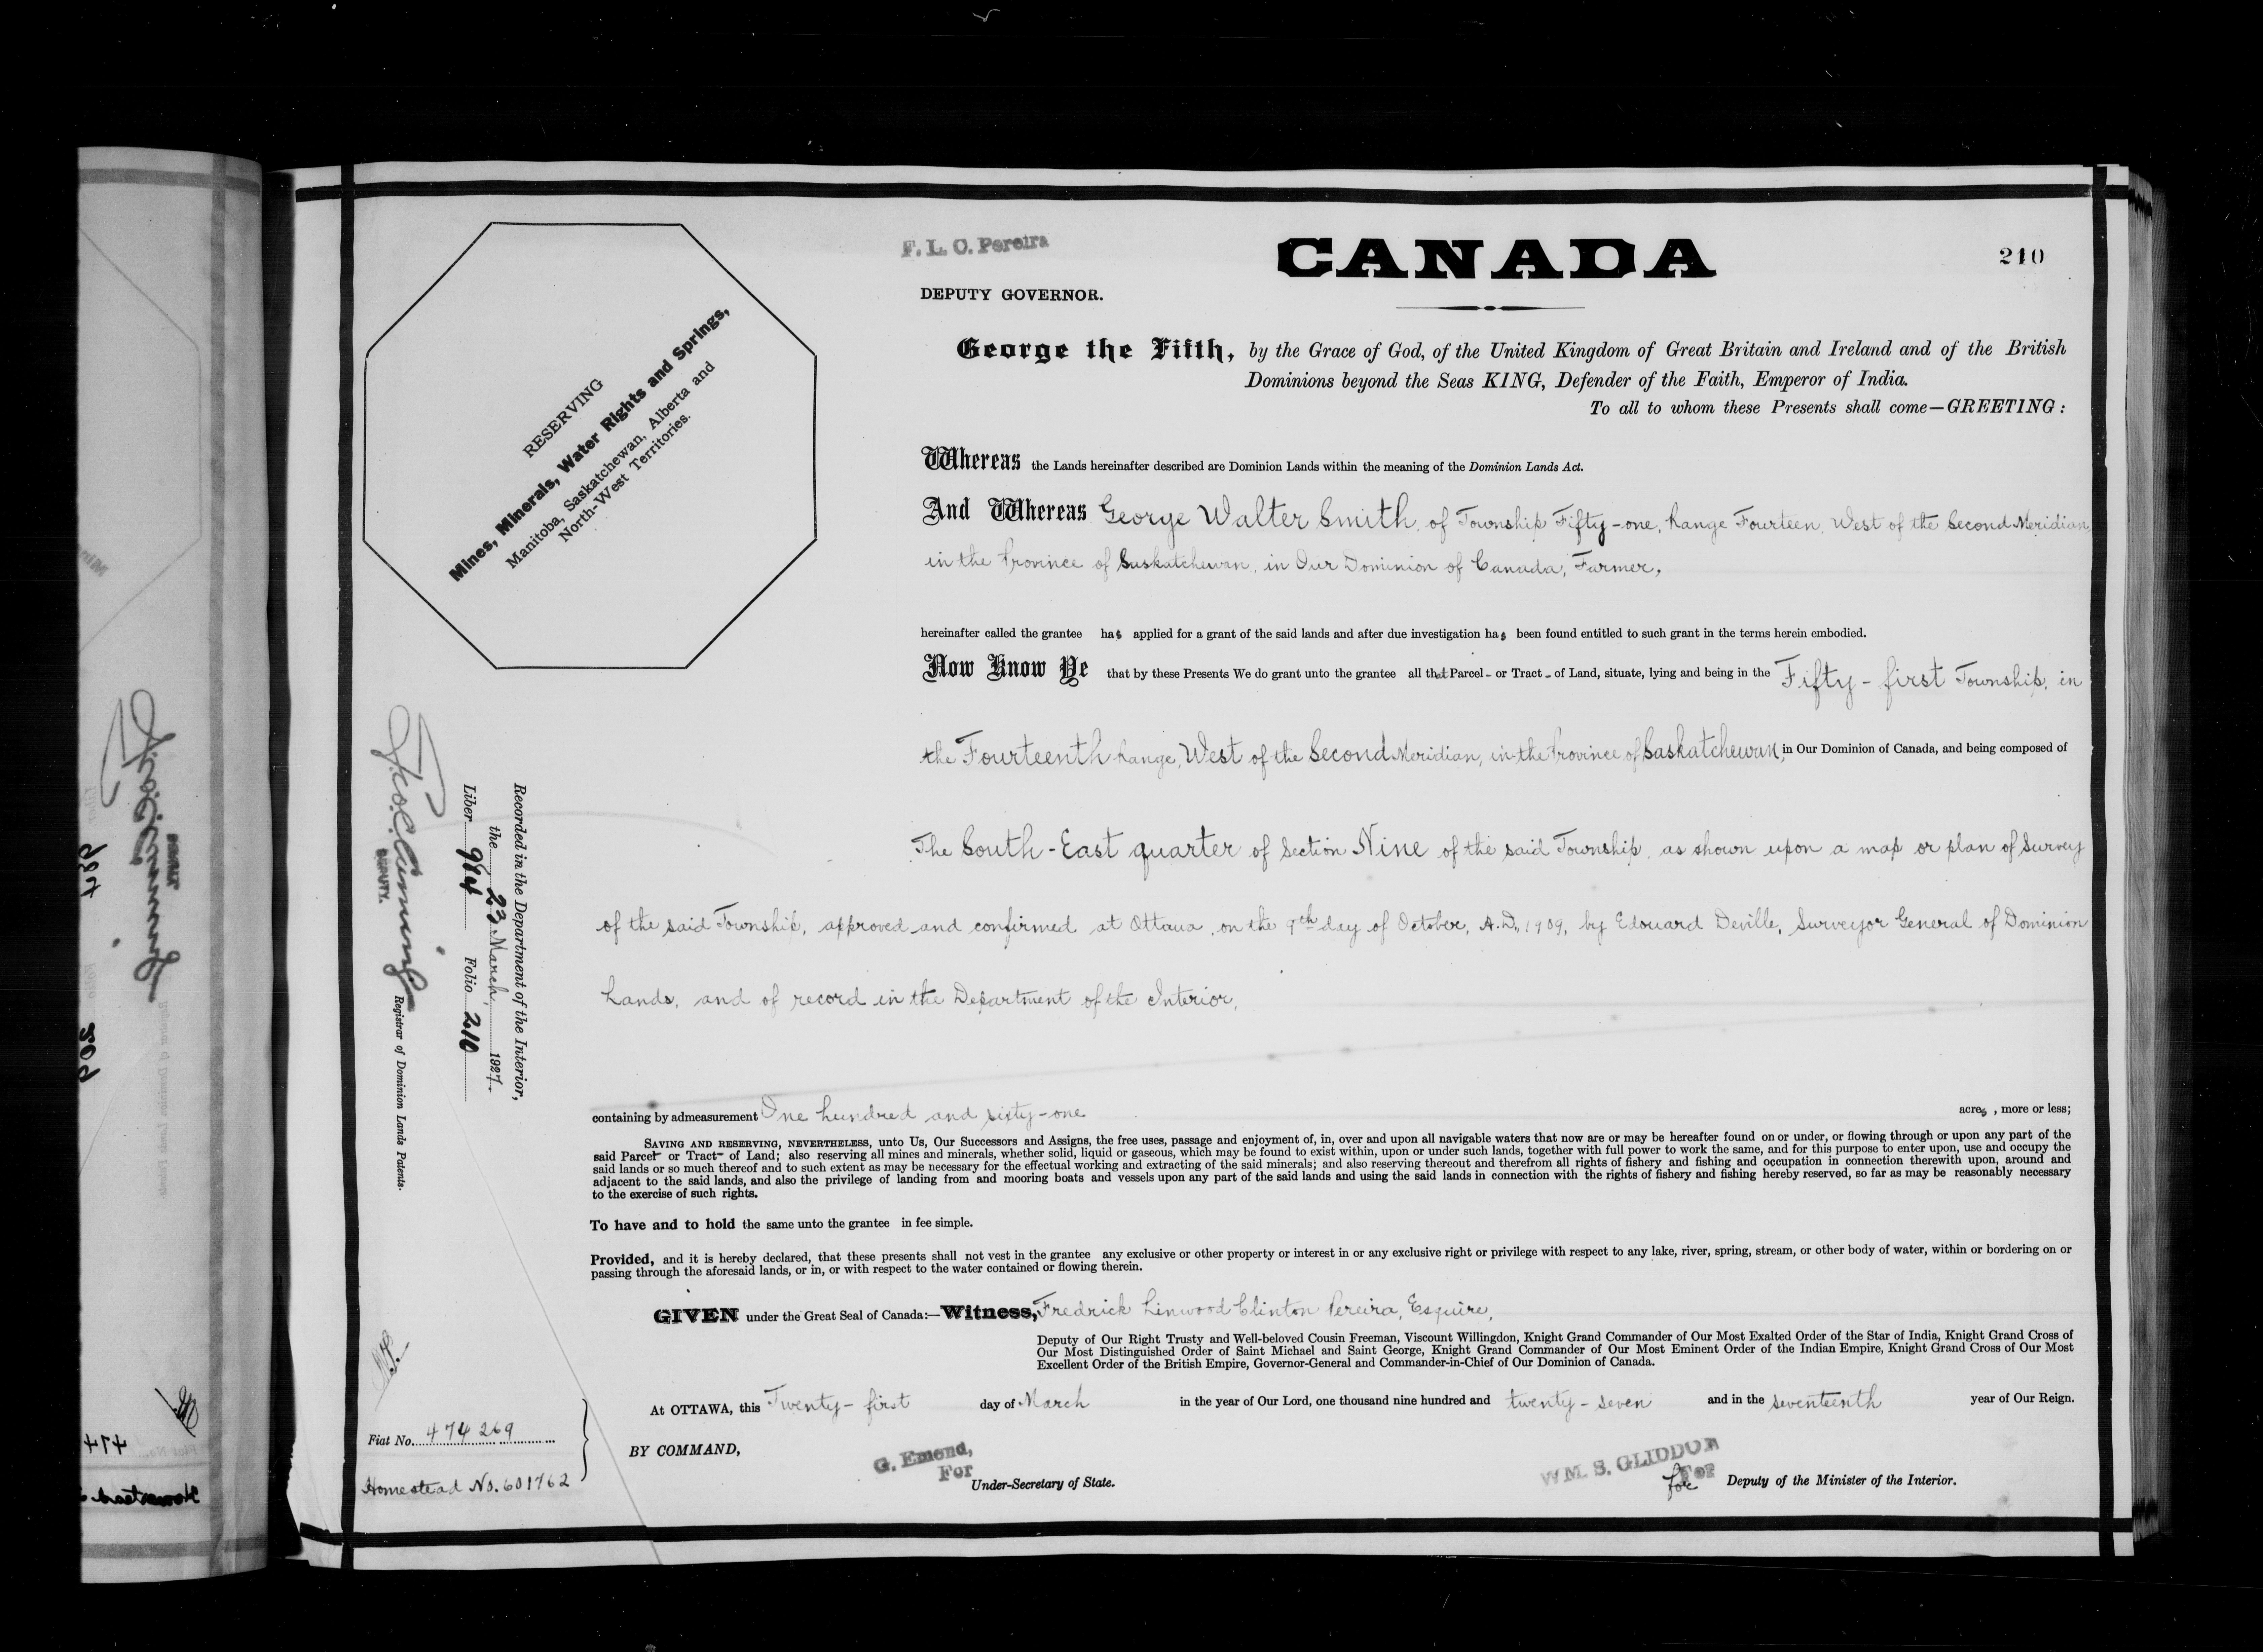 F. L. C. Pereira
DEPUTY GOVERNOR.
CANADA
210
George the Fifth, by the Grace of God, of the United Kingdom of Great Britain and Ireland and of the British
Dominions beyond the Seas KING, Defender of the Faith, Emperor of India.
To all to whom these Presents shall come—GREETING:
RESERVING
Mines, Minerals, Water Rights and Springs,
Manitoba, Saskatchewan, Alberta and
North-West Territories.
Whereas the Lands hereinafter described are Dominion Lands within the meaning of the Dominion Lands Act.
And Whereas George Walter Smith, of Township Fifty-one, Range Fourteen, West of the Second Meridian,
in the Province of Saskatchewan, in Our Dominion of Canada, Farmer,
hereinafter called the grantee has applied for a grant of the said lands and after due investigation has been found entitled to such grant in the terms herein embodied.
Now Know Ye that by these Presents We do grant unto the grantee all that Parcel - or Tract - of Land, situate, lying and being in the Fifty-first Township, in
the Fourteenth Range, West of the Second Meridian, in the Province of Saskatchewan, in Our Dominion of Canada, and being composed of
The South-East quarter of Section Nine of the said Township, as shown upon a map or plan of survey
of the said Township, approved and confirmed at Ottawa, on the 9th day of October, A.D., 1909, by Edouard Deville, Surveyor General of Dominion
Lands, and of record in the Department of the Interior,
Recorded in the Department of the Interior,
the 23 March, 1927.
Liber 944 Folio 210
DEPUTY. Registrar of Dominion Lands Patents.
containing by admeasurement One hundred and sixty-one acres, more or less;
SAVING AND RESERVING, NEVERTHELESS, unto Us, Our Successors and Assigns, the free uses, passage and enjoyment of, in, over and upon all navigable waters that now are or may be hereafter found on or under, or flowing through or upon any part of the
said Parcel- or Tract- of Land; also reserving all mines and minerals, whether solid, liquid or gaseous, which may be found to exist within, upon or under such lands, together with full power to work the same, and for this purpose to enter upon, use and occupy the
said lands or so much thereof and to such extent as may be necessary for the effectual working and extracting of the said minerals; and also reserving thereout and therefrom all rights of fishery and fishing and occupation in connection therewith upon, around and
adjacent to the said lands, and also the privilege of landing from and mooring boats and vessels upon any part of the said lands and using the said lands in connection with the rights of fishery and fishing hereby reserved, so far as may be reasonably necessary
to the exercise of such rights.
To have and to hold the same unto the grantee in fee simple.
Provided, and it is hereby declared, that these presents shall not vest in the grantee any exclusive or other property or interest in or any exclusive right or privilege with respect to any lake, river, spring, stream, or other body of water, within or bordering on or
passing through the aforesaid lands, or in, or with respect to the water contained or flowing therein.
GIVEN under the Great Seal of Canada:—Witness, Fredrick Linwood Clinton Pereira, Esquire,
Deputy of Our Right Trusty and Well-beloved Cousin Freeman, Viscount Willingdon, Knight Grand Commander of Our Most Exalted Order of the Star of India, Knight Grand Cross of
Our Most Distinguished Order of Saint Michael and Saint George, Knight Grand Commander of Our Most Eminent Order of the Indian Empire, Knight Grand Cross of Our Most
Excellent Order of the British Empire, Governor-General and Commander-in-Chief of Our Dominion of Canada.
At OTTAWA, this Twenty-first day of March in the year of Our Lord, one thousand nine hundred and twenty-seven and in the seventeenth year of Our Reign.
Fiat No. 474269
BY COMMAND,
Homestead No. 601762
G. Emond,
For
Under-Secretary of State.
WM. S. GLIDDON
For
for Deputy of the Minister of the Interior.